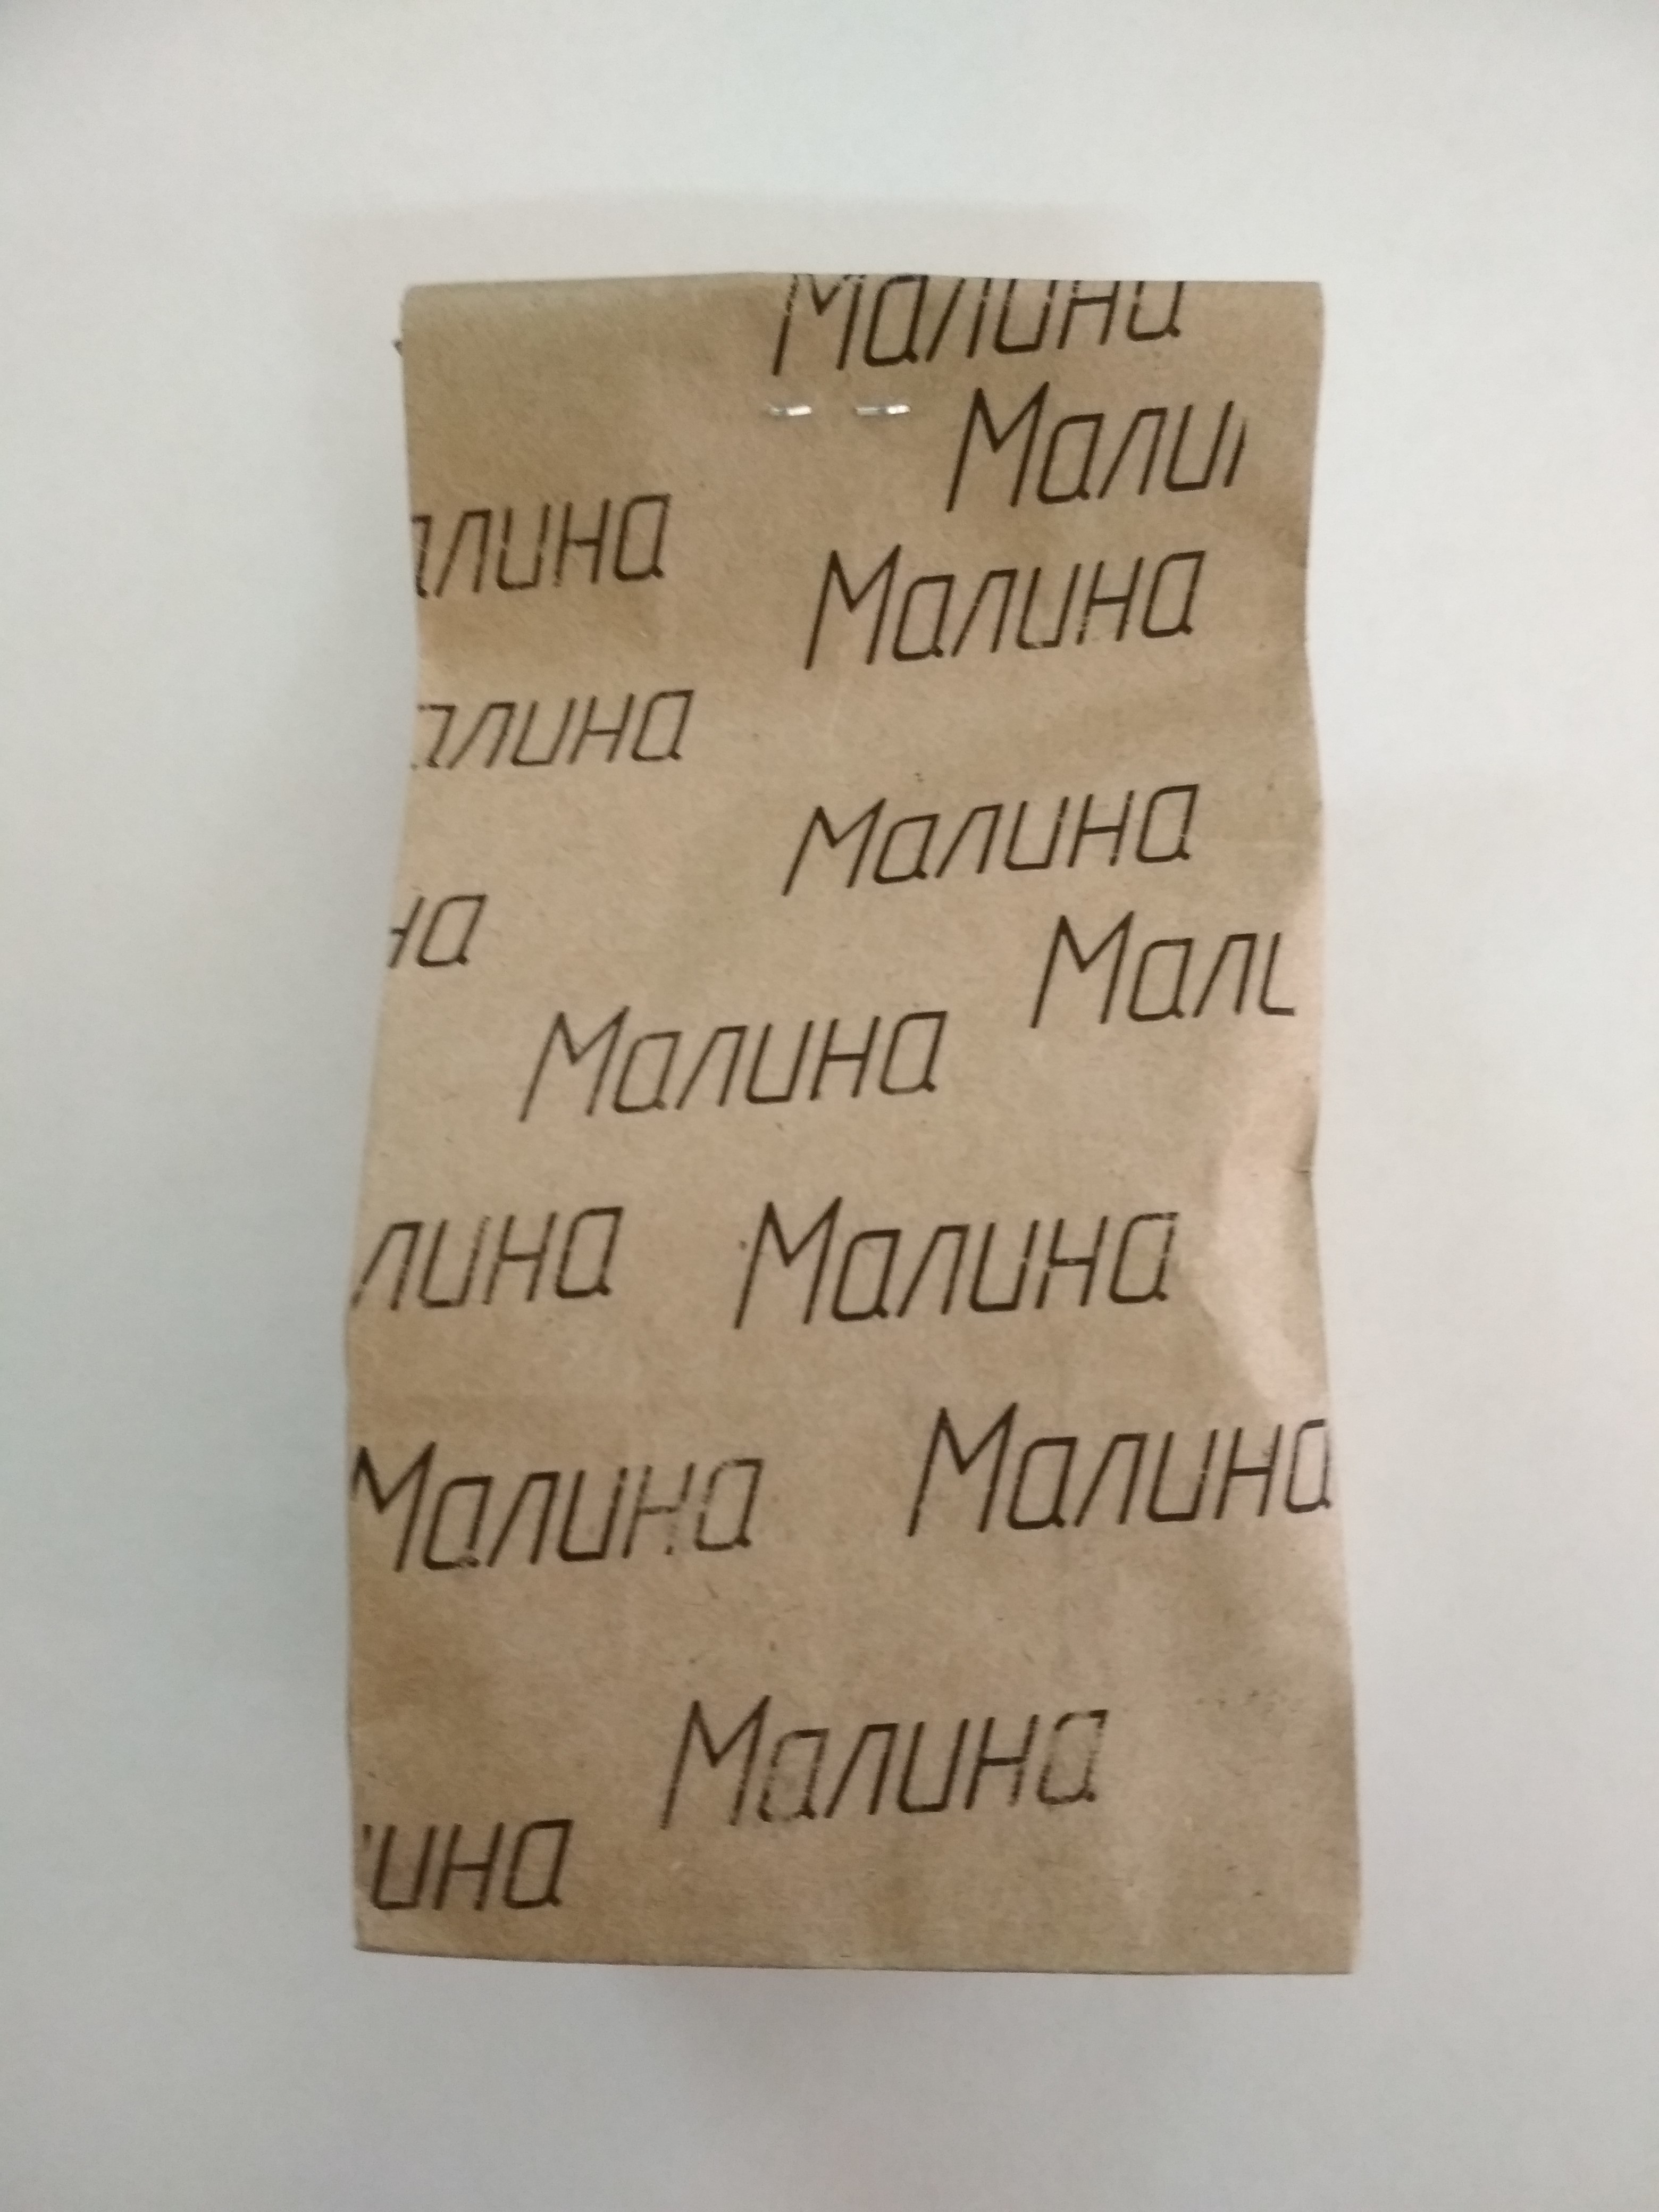 Малина
Мали
алина
Малина
алина
Малина
на
Мали
Малина
лина
Малина
Малина
Малина
Малина
ина